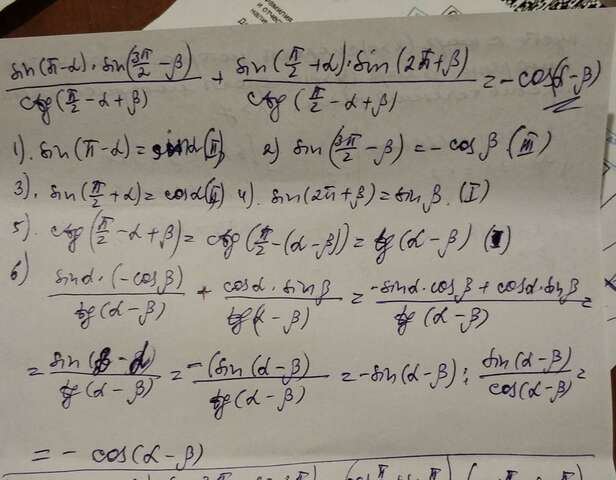 sin(π-α)·sin(3π/2-β)/ctg(π/2-α+β) + sin(π/2+α)·sin(2π+β)/ctg(π/2-α+β) = -cos(α-β)
1). sin(π-α)=sinα(II) 2) sin(3π/2-β)=-cosβ(III)
3). sin(π/2+α)=cosα(II) 4). sin(2π+β)=sinβ. (I)
5). ctg(π/2-α+β)=ctg(π/2-(α-β))=tg(α-β) (I)
6) sinα·(-cosβ)/tg(α-β) + cosα·sinβ/tg(α-β) = -sinα·cosβ+cosα·sinβ/tg(α-β) =
= sin(β-α)/tg(α-β) = -(sin(α-β)/tg(α-β) = -sin(α-β) : sin(α-β)/cos(α-β) =
= - cos(α-β)